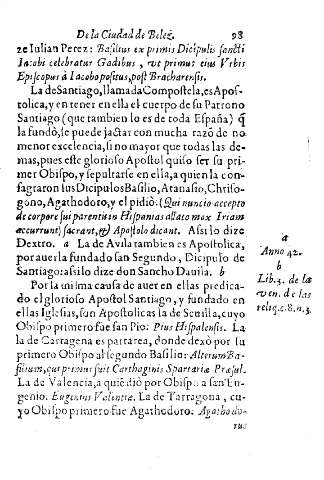 De la Ciudad de Beleg. 98
ze Iulian Perez: Basilius ex primis Dicipulis sancti
Iacobi celebratur Gadibus, ut primus eius Vrbis
Episcopus à Iacobo positus, post Bracharensis.
La de Santiago, llamada Compostela, es Apos-
tolica, y en tener en ella el cuerpo de su Patrono
Santiago (que tambien lo es de toda España) q̃
la fundò, se puede jactar con mucha razõ de no
menor excelencia, si no mayor que todas las de-
mas, pues este glorioso Apostol quiso ser su pri-
mer Obispo, y sepultarse en ella, a quien la con-
sagraron sus Dicipulos Basilio, Atanasio, Chriso-
gono, Agathodoro, y el pidiò: (Qui nuncio accepto
de corpore sui parentis in Hispanias allato mox Iriam
accurrunt) sacrant, & Apostolo dicant. Asi lo dize
Dextro. a La de Avila tambien es Apostolica,
por auerla fundado san Segundo, Dicipulo de
Santiago: asi lo dize don Sancho Dauila. b
Por la misma causa de auer en ellas predica-
do el glorioso Apostol Santiago, y fundado en
ellas Iglesias, son Apostolicas la de Seuilla, cuyo
Obispo primero fue san Pio: Pius Hispalensis. La
la de Cartagena es partarea, donde dexò por su
primero Obispo al segundo Basilio: Alterum Ba-
silium, qui primus fuit Carthaginis Spartariæ Præsul.
La de Valencia, a quiẽ diò por Obispo a san Eu-
genio. Eugenius Valentiæ. La de Tarragona, cu-
yo Obispo primero fue Agathodoro: Agathodo-
rus
a
Anno 42.
b
Lib. 3. de la
ven. de las
reliq. c. 8. n. 3.